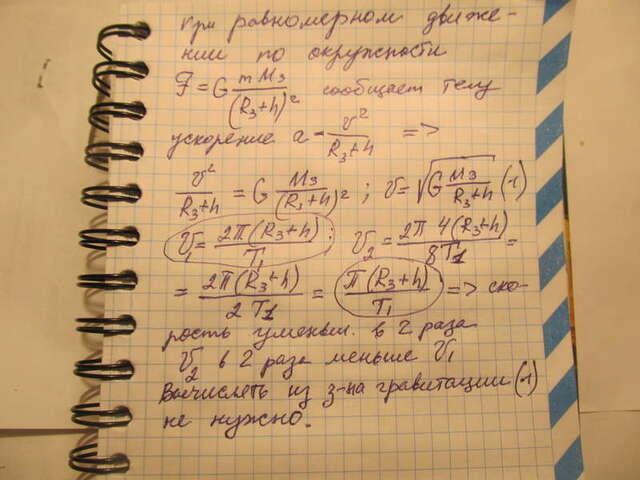 при равномерном движе-
нии по окружности
F = G mMз/(Rз+h)² сообщает телу
ускорение a = v²/(Rз+h) =>
v²/(Rз+h) = G Mз/(Rз+h)²; v = √(G Mз/(Rз+h)) (1)
v₁ = 2π(Rз+h)/T₁; v₂ = 2π 4(Rз+h)/8T₁ =
= 2π(Rз+h)/2T₁ = π(Rз+h)/T₁ => ско-
рость уменьш. в 2 раза
v₂ в 2 раза меньше v₁
Вычислять из з-на гравитации (1)
не нужно.